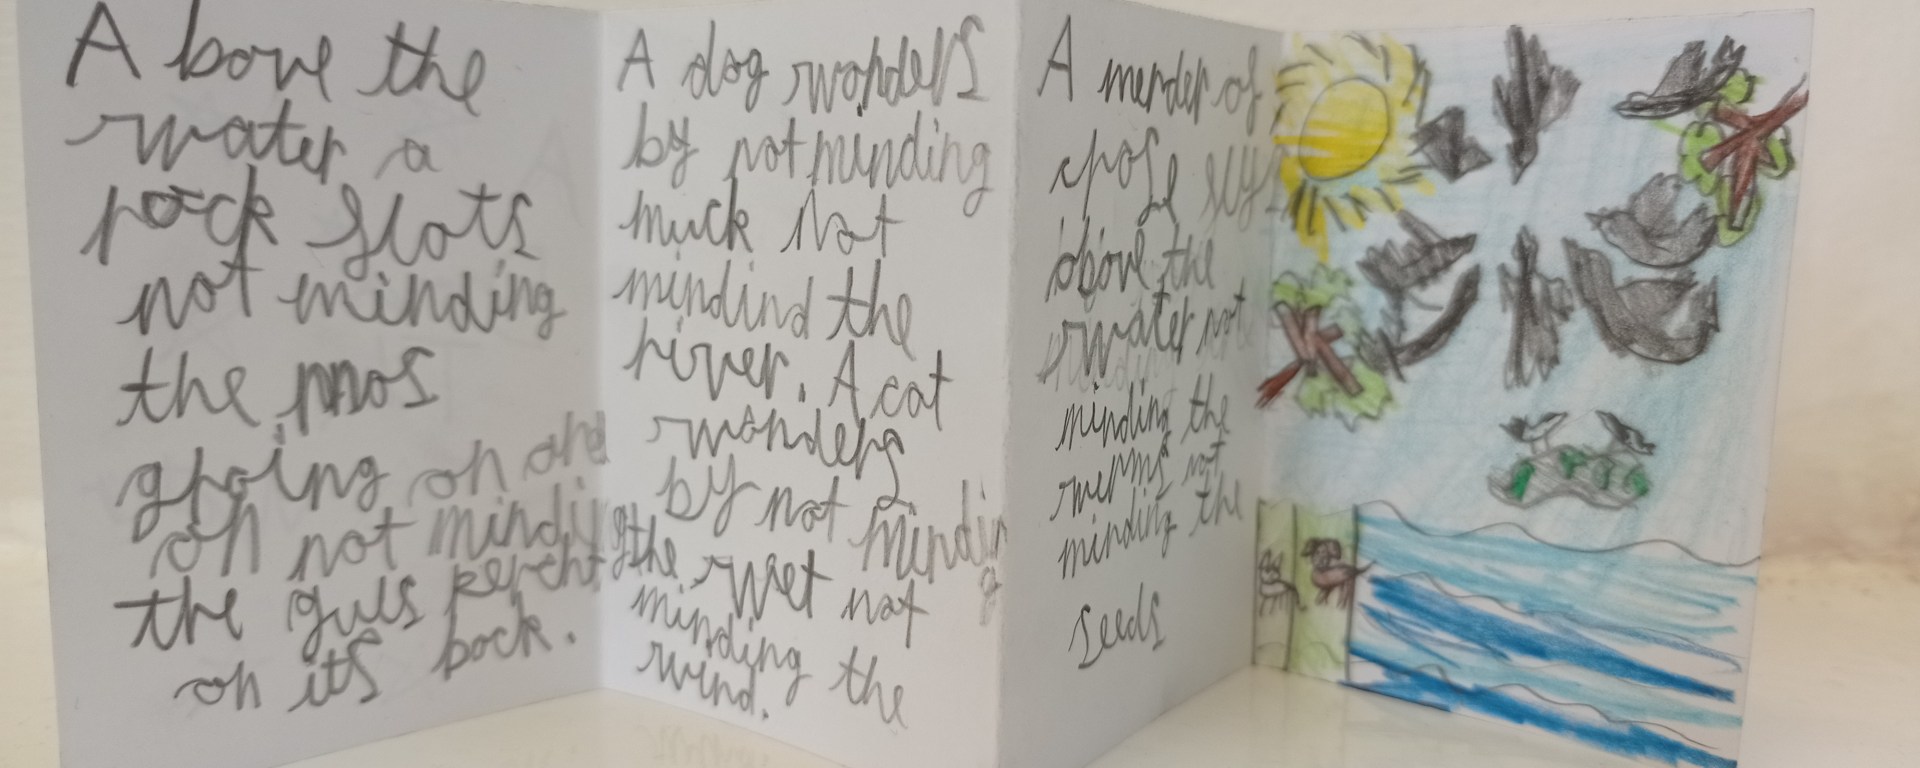 Above the
water a
rock flots
not minding
the mos
groing on and
on not minding
the guls percht
on its back.
A dog wonders
by not minding
muck not
mindind the
river. A cat
wanders
by not minding
the wet not
minding the
wind.
A merder of
crose flys
above the
water not
minding the
werms not
minding the
seeds